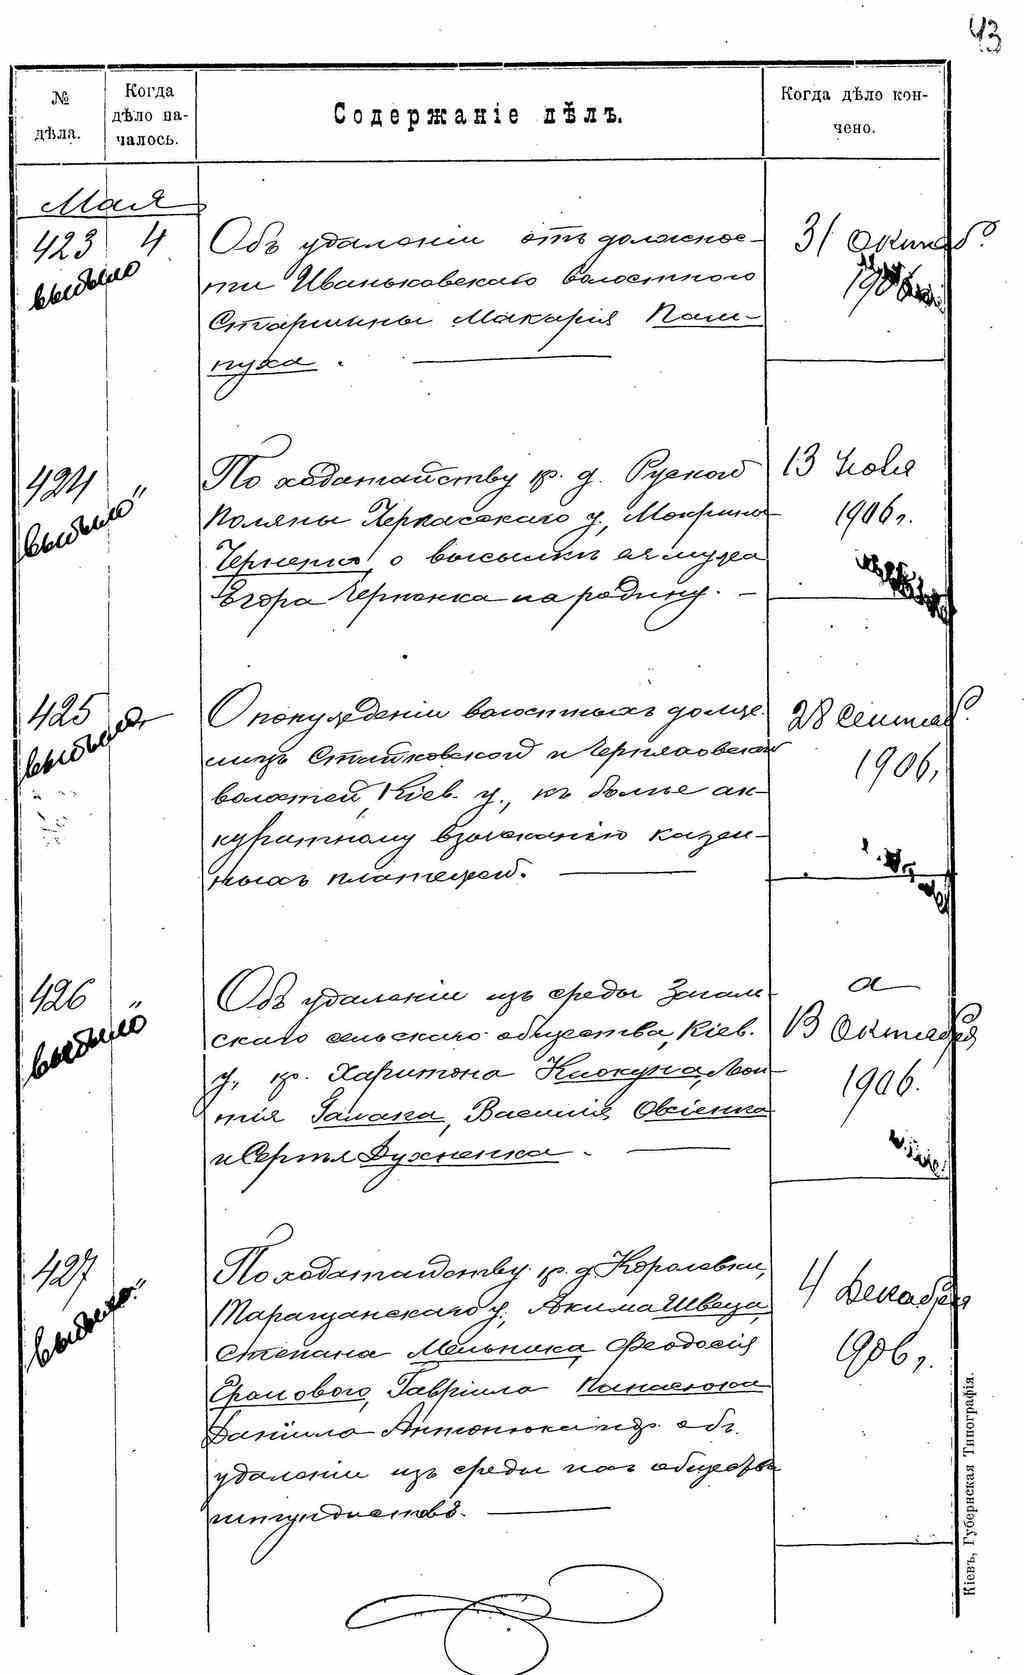 43
№ дѣла.
Когда дѣло на-
чалось.
Содержаніе дѣлъ.
Когда дѣло кон-
чено.
Мая
423 4
выбыло
Объ удаленіи отъ должнос-
ти Иваньковскаго волостного
Старшины Макарія Пам-
пуха.
31 Октяб.
1906
424 "
выбыло
По ходатайству кр. д. Руской
Поляны Черкасскаго у., Мокрины
о высылкѣ ея мужа
Егора Черненка на родину. —
13 Ноября
1906 г.
425
выбыло
О понужденіи волостныхъ долже.
лицъ Стайковской и Черняховской
волостей, Кіев. у., къ болѣе ак-
куратному взысканію казен-
ныхъ платежей.
28 Сентяб.
1906.
426 "
выбыло
Объ удаленіи изъ среды
скаго сельскаго общества, Кіев.
у., кр. Харитона Леон-
тія Галака, Василія Овсіенка
и Сергѣя Духненка.
а
13 Октября
1906.
427 "
выбыло
По ходатайству кр. д. Королевки,
Таращанскаго у., Акима Швеца,
Степана Мельника, Феодосія
Гавріила Панасюка
Даніила Антонюка и др. объ
удаленіи изъ среды ихъ общества
штундистовъ.
4 Декабря
1906 г.
Кіевъ, Губернская Типографія.